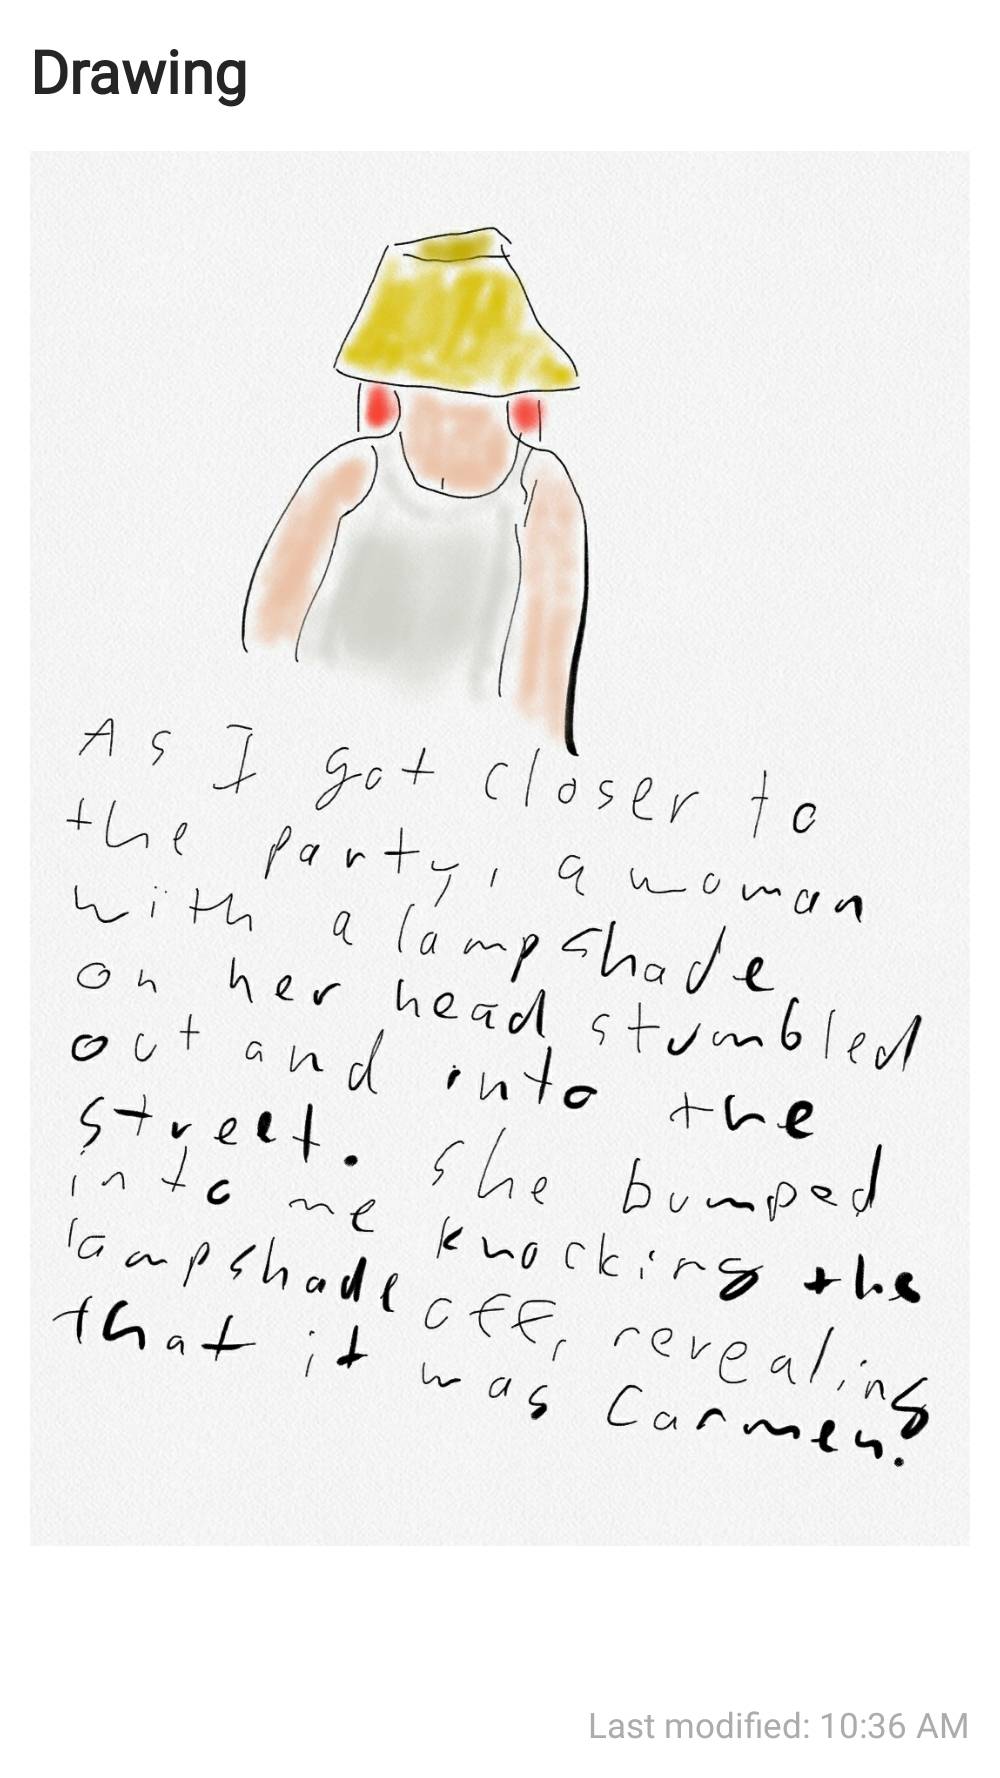 Drawing
As I got closer to
the party, a woman
with a lampshade
on her head stumbled
out and into the
street. She bumped
into me knocking the
lampshade off, revealing
that it was Carmen.
Last modified: 10:36 AM